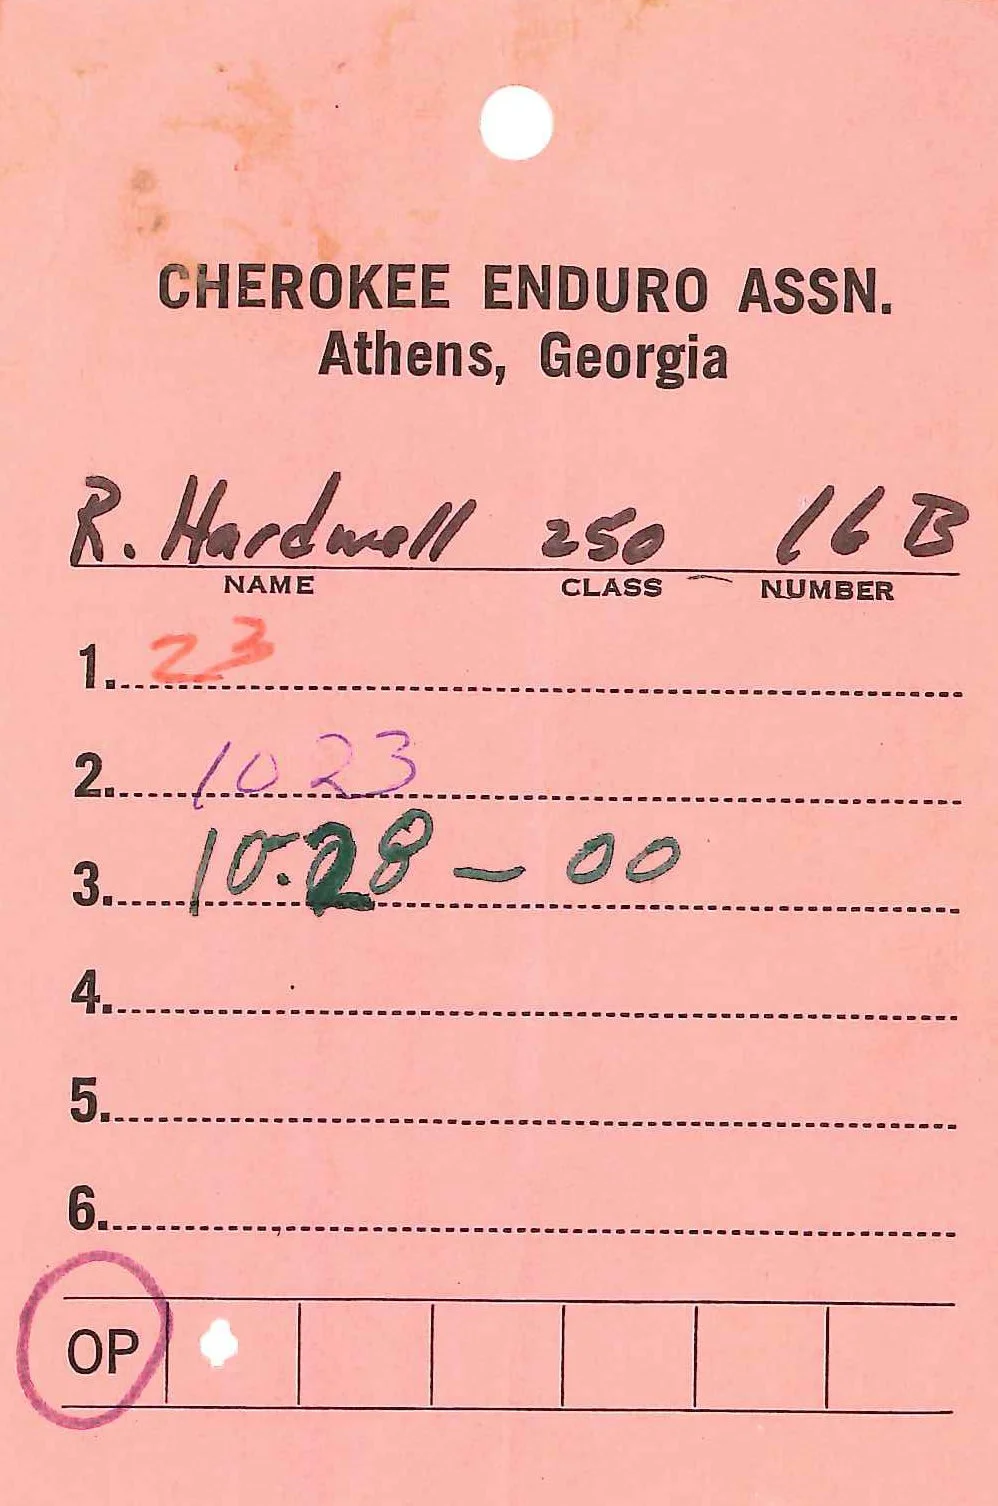 CHEROKEE ENDURO ASSN.
Athens, Georgia
R. Hardwell 250 16 B
NAME CLASS NUMBER
1. 23
2. 10 23
3. 10.28 - 00
4.
5.
6.
OP